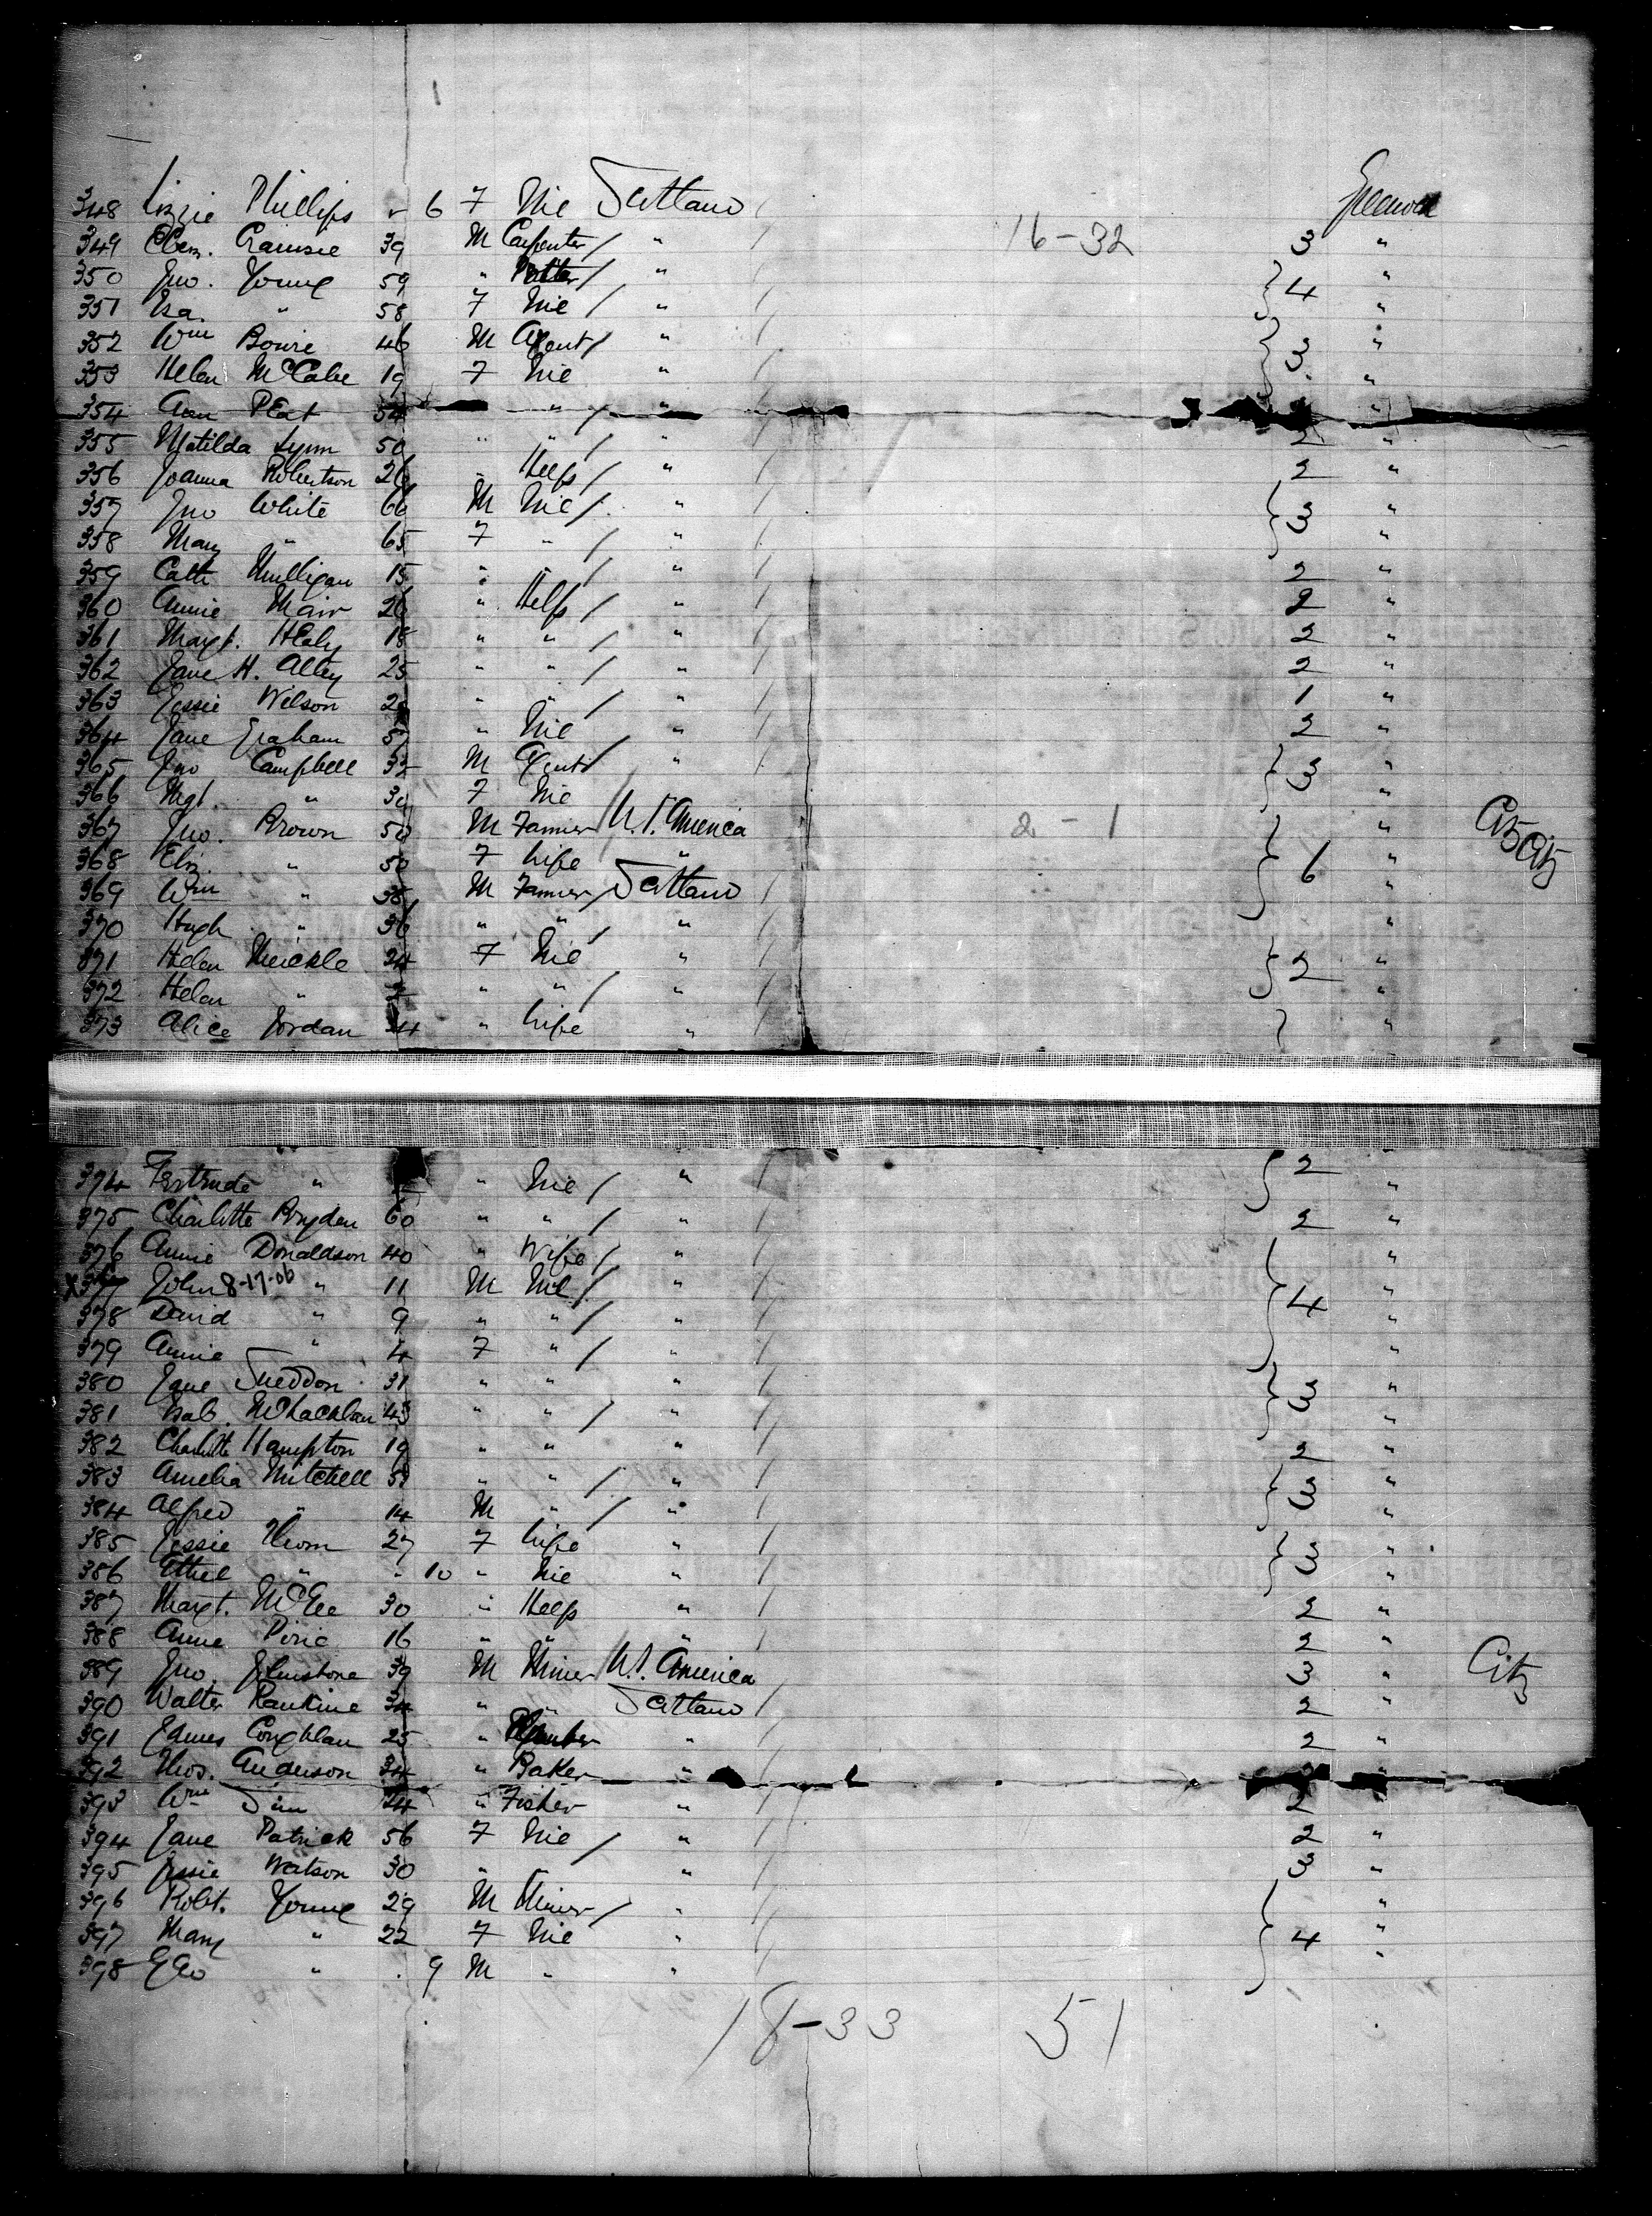 348 Lizzie Phillips - 6 7 Nil Scotland Greenock
349 Eben. Cramsie 39 M Carpenter / " 16-32 3 "
350 Jno. Young 59 " / " 4 "
351 Isa. " 58 7 Nil / " "
352 Wm Bowie 46 M Agent / " 3 "
353 Helen McCabe 19 7 Nil " "
354 Ann Peat 54 " / " "
355 Matilda Lynn 50 " " / " 2 "
356 Joanna Robertson 26 " Help / " 2 "
357 Jno White 66 M Nil / " 3 "
358 Mary " 65 7 " / " "
359 Cath Mulligan 15 " " / " 2 "
360 Annie Mair 26 " Help / " 2 "
361 Margt. Healy 18 " " / " 2 "
362 Jane H. Alley 25 " " / " 2 "
363 Jessie Wilson " " / " 1 "
364 Jane Graham " Nil " 2 "
365 Jno Campbell 32 M Agent / " 3 "
366 Mgt. " 30 7 Nil "
367 Jno. Brown 50 M Farmer / U.S. America 2-1 " Citz
368 Eliz. " 50 7 Wife " 6 " Citz
369 Wm " 38 M Farmer / Scotland "
370 Hugh " 36 " " / " "
371 Helen Meickle 24 7 Nil " 2 "
372 Helen " " " / " "
373 Alice Jordan " Wife " "
374 Gertrude " " Nil / " 2 "
375 Charlotte Bryden 60 " " / " 2 "
376 Annie Donaldson 40 " Wife / " "
X377 John 8-17-06 " 11 M Nil / " 4 "
378 David " 9 " " / " "
379 Annie " 4 7 " / " "
380 Jane Sneddon 31 " " " 3 "
381 Isab. McLachlan 45 " " / " "
382 Charlotte Hampton 19 " " " 2 "
383 Amelia Mitchell " " / " 3 "
384 Alfred " 14 M " / " "
385 Jessie Thom 27 7 Wife " 3 "
386 Ethel " " 10 " Nil " "
387 Margt. McGee 30 " Help " 2 "
388 Anne Pirie 16 " " " 2 "
389 Jno. Johnstone 39 M Miner / U.S. America 3 " Citz
390 Walter Rankine 34 " " Scotland 2 "
391 James Coughlan 25 " Plumber " 2 "
392 Thos. Anderson 34 " Baker " "
393 Wm Sim 24 " Fisher " 2
394 Jane Patrick 56 7 Nil / " 2 "
395 Jessie Watson 30 " " 3 "
396 Robt. Young 29 M Miner / " "
397 Mary " 22 7 Nil " 4 "
398 Geo " . 9 M " " "
18-33 51